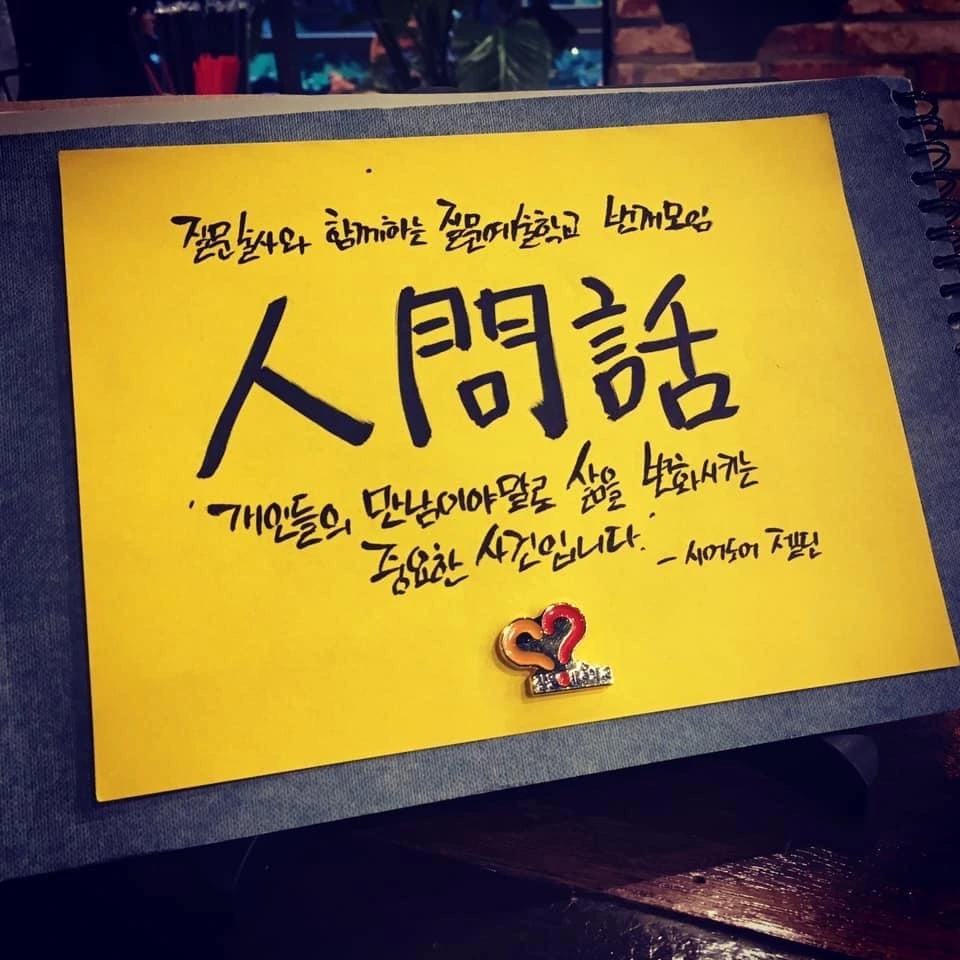 질문술사와 함께하는 질문예술학교 번개모임
人問話
'개인들의 만남이야말로 삶을 변화시키는
중요한 사건입니다.'
- 시어도어 젤딘